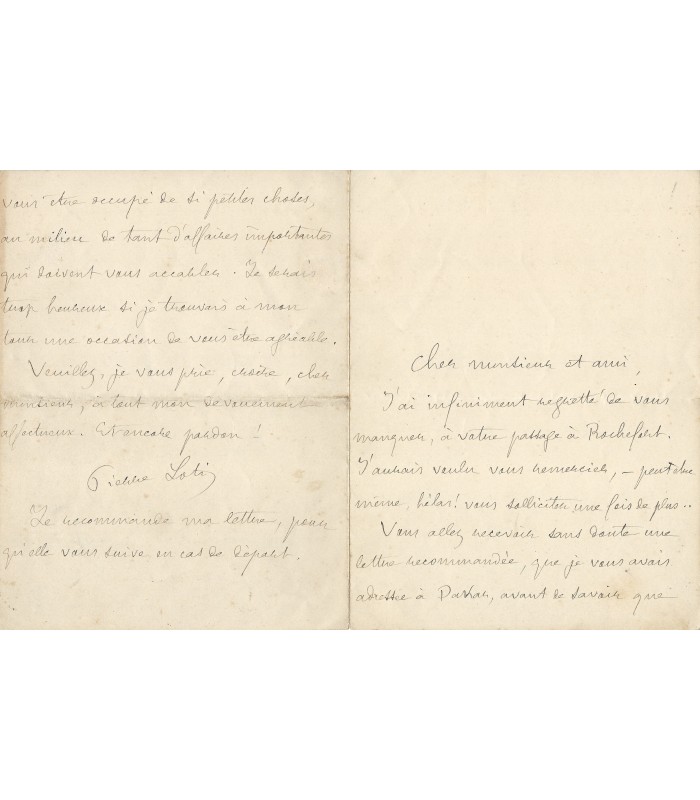 Cher monsieur et ami,
J'ai infiniment regretté de vous
manquer, à votre passage à Rochefort.
J'aurais voulu vous remercier, – peut-être
même, hélas! vous solliciter une fois de plus..
Vous allez recevoir sans doute une
lettre recommandée, que je vous avais
adressée à Dakar, avant de savoir que
vous être occupé de si petites choses,
au milieu de tant d'affaires importantes
qui doivent vous accabler. Je serais
trop heureux si je trouvais à mon
tour une occasion de vous être agréable.
Veuillez, je vous prie, croire, cher
monsieur, à tout mon dévouement
affectueux. Et encore pardon!
Pierre Loti
Je recommande ma lettre, pour
qu'elle vous suive en cas de départ.